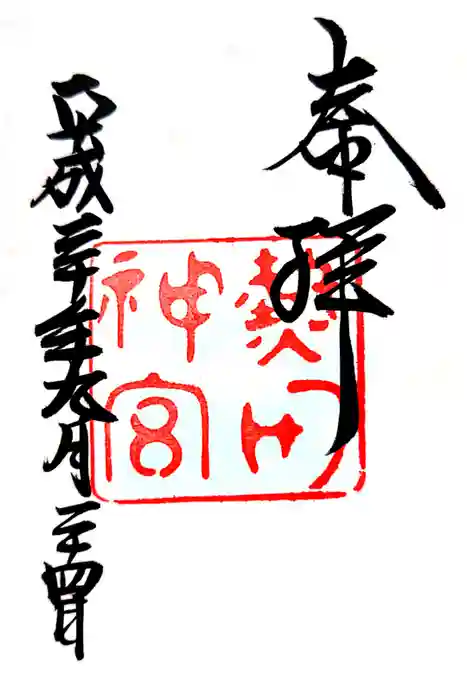 奉拝
熱田神宮
平成三十年九月二十四日